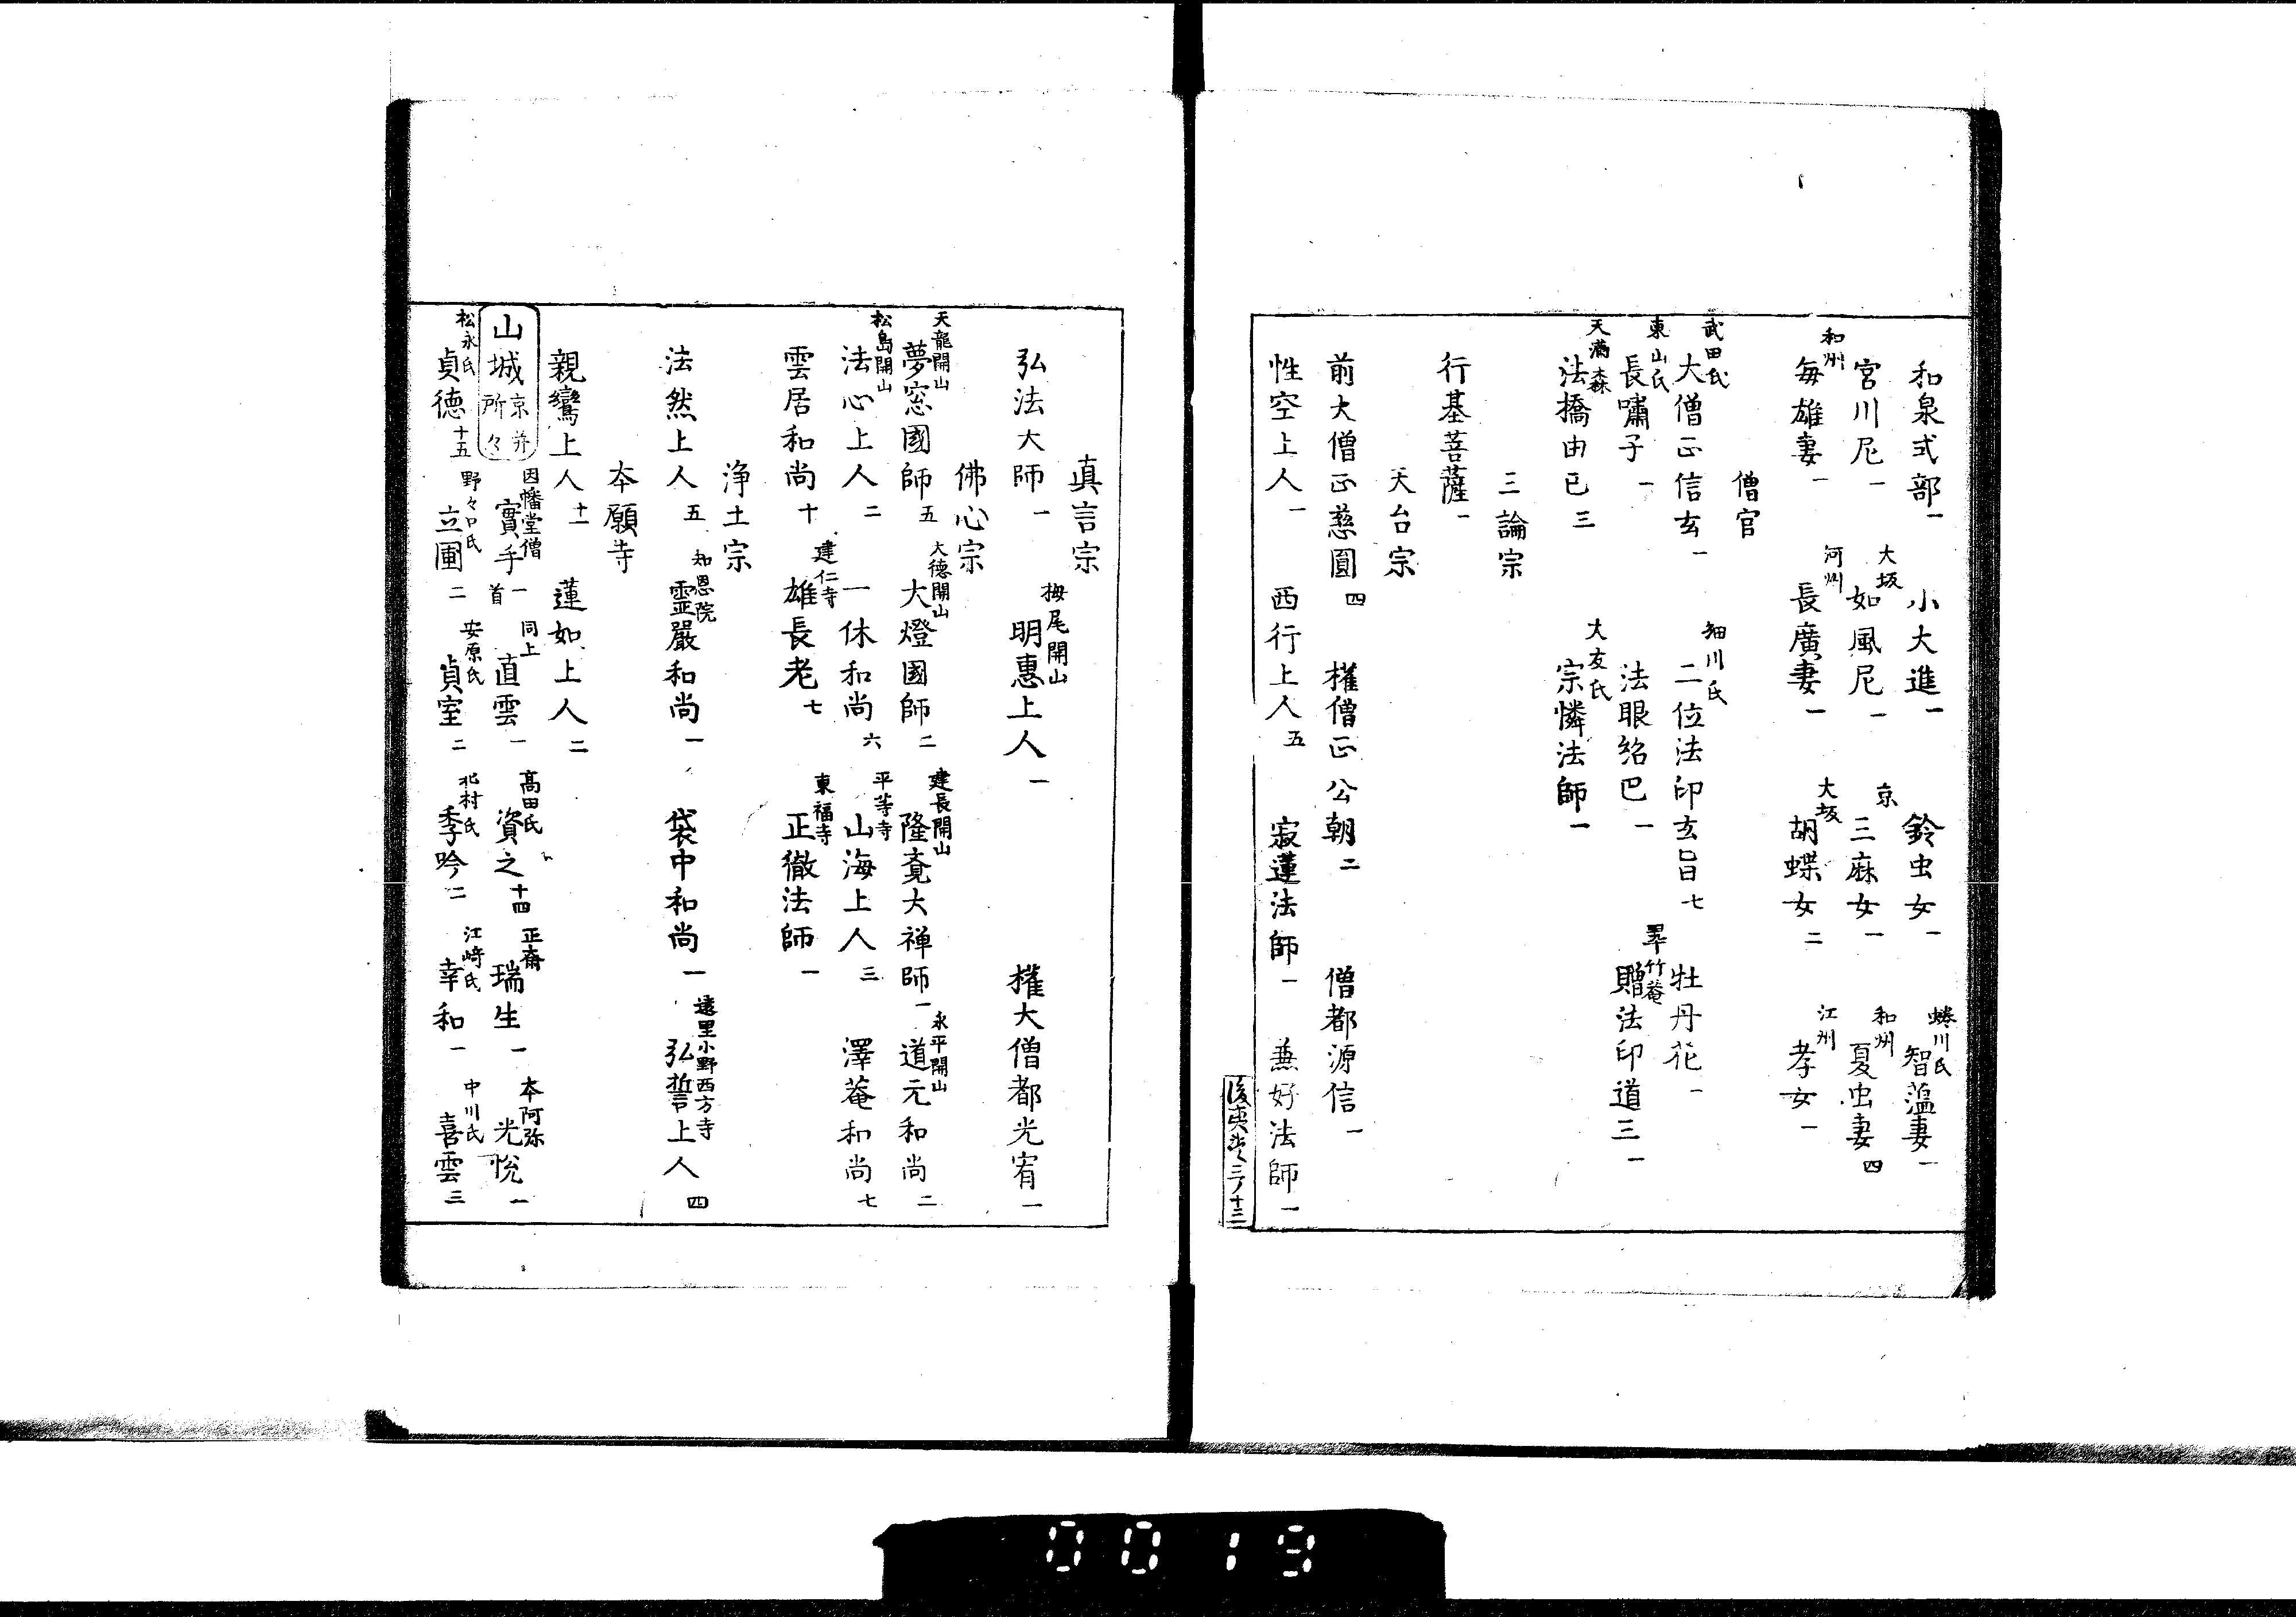 和泉式部一 小大進一 鈴虫女一 蜷川氏智蕰妻一
宮川尼一 大坂如風尼一 京三麻女一 和州夏虫妻四
和州毎雄妻一 河州長廣妻一 大坂胡蝶女二 江州孝女一
僧官
武田氏大僧正信玄一 細川氏二位法印玄旨七 牡丹花一
東山氏長嘯子一 法眼紹巴一 翠竹菴贈法印道三一
天満森法橋由已三 大友氏宗憐法師一
三論宗
行基菩薩一
天台宗
前大僧正慈圓四 権僧正公朝二 僧都源信一
性空上人一 西行上人五 寂蓮法師一 兼好法師一
真言宗
弘法大師一 栂尾開山明惠上人一 権大僧都光宥一
佛心宗
天龍開山夢窓國師五 大德開山大燈國師二 建長開山隆寛大禅師一 永平開山道元和尚二
松島開山法心上人二 一休和尚六 平等寺山海上人三 澤菴和尚七
雲居和尚十 建仁寺雄長老七 東福寺正徹法師一
浄土宗
法然上人五 知恩院霊巖和尚一 袋中和尚一 遠里小野西方寺弘誓上人四
本願寺
親鸞上人十一 蓮如上人二
山城京并所々 因幡堂僧實手一首 同上直雲一 高田氏資之十四 正齋瑞生一 本阿弥光悦一
松永氏貞德十五 野々口氏立圃二 安原氏貞室二 北村氏季吟二 江﨑氏幸和一 中川氏喜雲三
0019